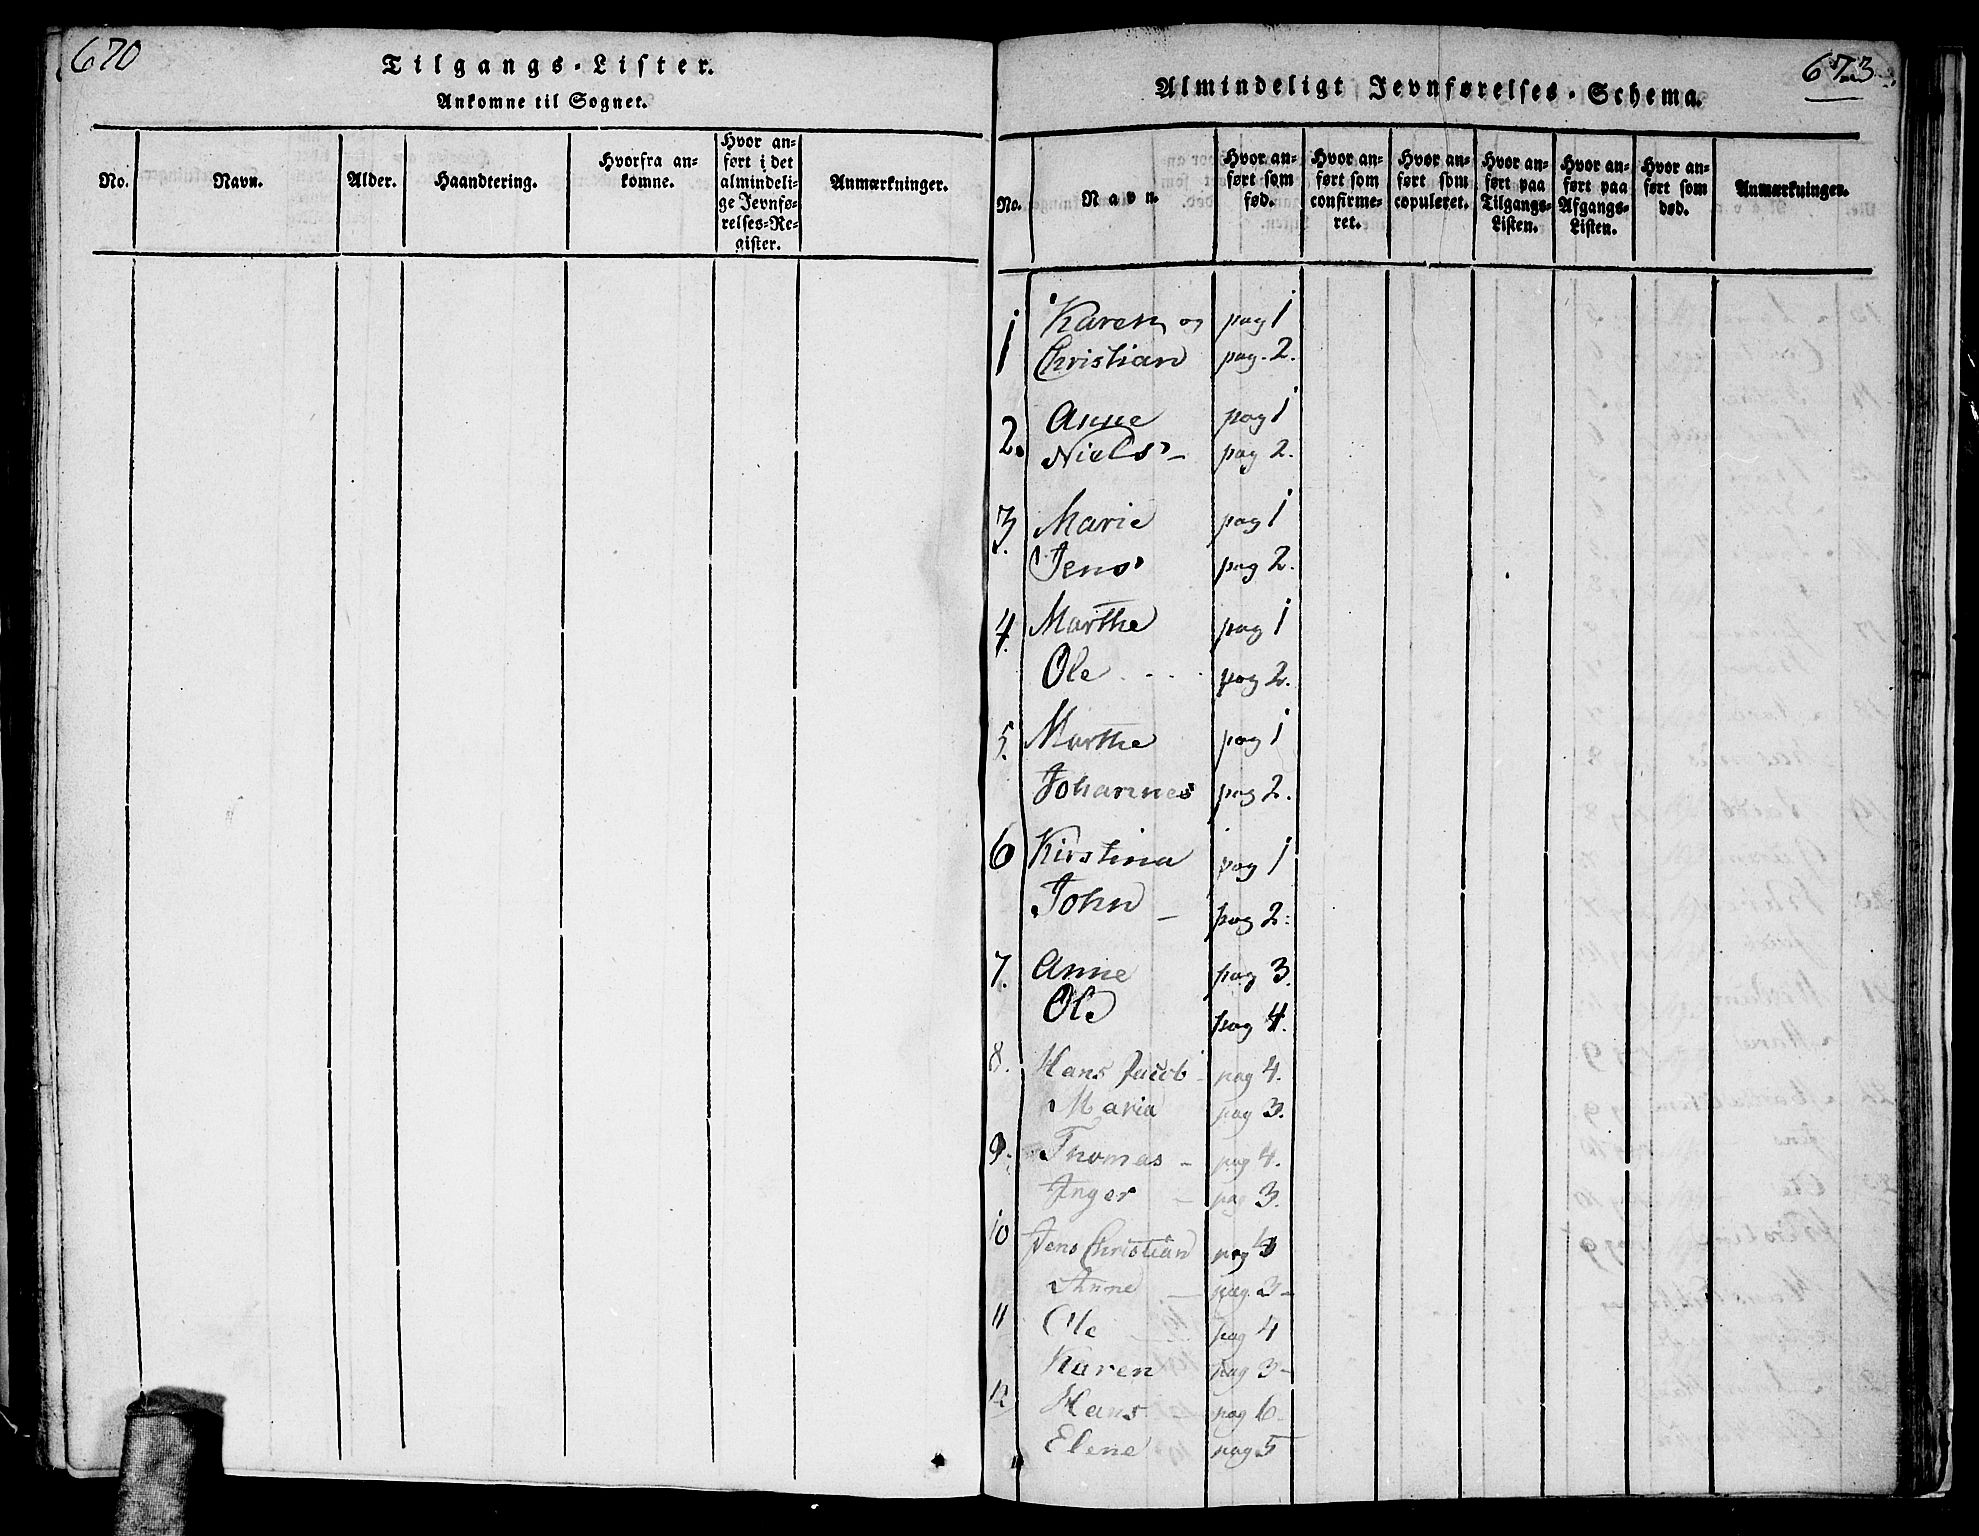 670
Tilgangs-Lister.
Ankomne til Sognet.
No.
Navn.
Alder.
Haandtering.
Hvorfra an-
komne.
Hvor an-
ført i det
almindeli-
ge Jevnfø-
relses-Re-
gister.
Anmærkninger.
673
Almindeligt Jevnførelses-Schema.
No.
Navn.
Hvor an-
ført som
fød.
Hvor an-
ført som
confirme-
ret.
Hvor an-
ført som
copuleret.
Hvor an-
ført paa
Tilgangs-
Listen.
Hvor an-
ført paa
Afgangs-
Listen.
Hvor an-
ført som
død.
Anmærkninger.
1 Karen og pag 1
Christian pag. 2.
2. Anne pag 1
Niels - pag 2.
3. Marie pag 1
Jens pag 2.
4. Marthe pag 1
Ole . - - . pag 2.
5. Marthe pag 1
Johannes pag 2.
6 Kirstina pag 1
John - pag 2:
7. Anne pag 3.
Ole pag 4.
8. Hans Jacob - pag 4.
Maria pag 3.
9. Thomas - pag 4.
Inger - pag 3.
10 Jens Christian pag 4
Anne - pag. 3 -
11 Ole pag 4
Karen pag 3 -
12 Hans pag 6 -
Elene pag 5